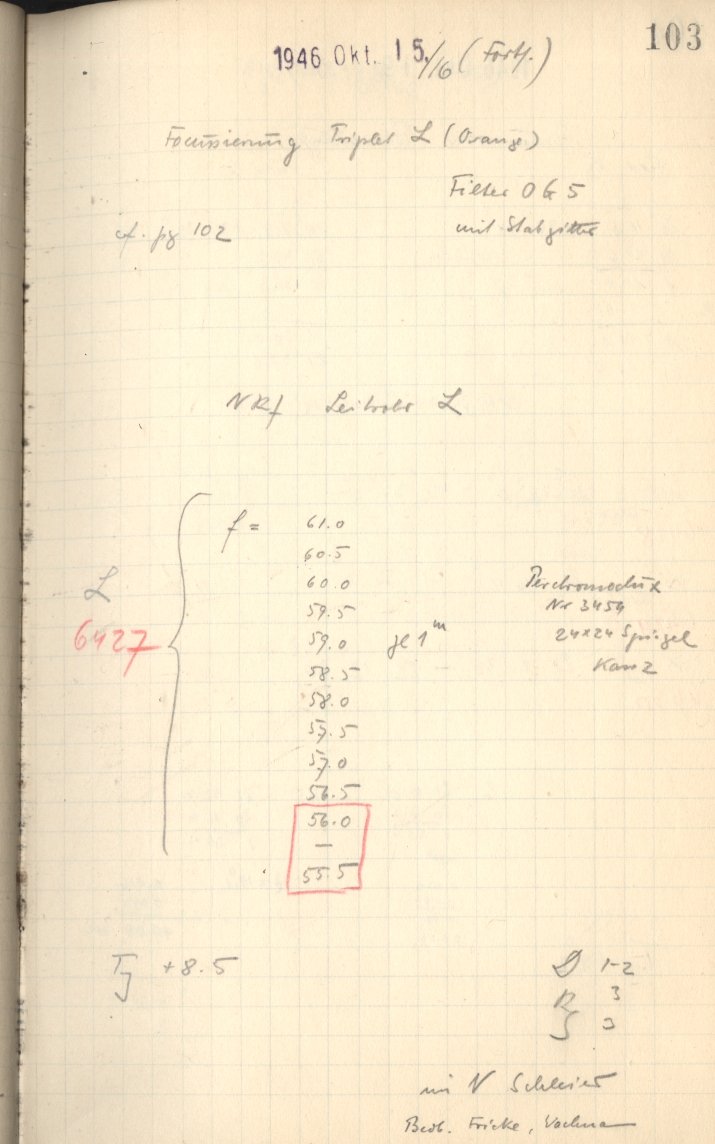 103
1946 Okt. 15./16 (Forts.)
Focussierung Triplet L (Orange)
Filter OG 5
cf. pg 102
mit Stabgitter
NRf Leitrohr L
f = 61.0
60.5
60.0
59.5
59.0 je 1m
58.5
58.0
57.5
57.0
56.5
56.0
—
55.5
L
6427
Perchromodux
Nr 3454
24x24 Spiegel
Kass 2
+8.5
D 1-2
R 3
S 3
im N Schleier
Beob. Fricke, Wachmann